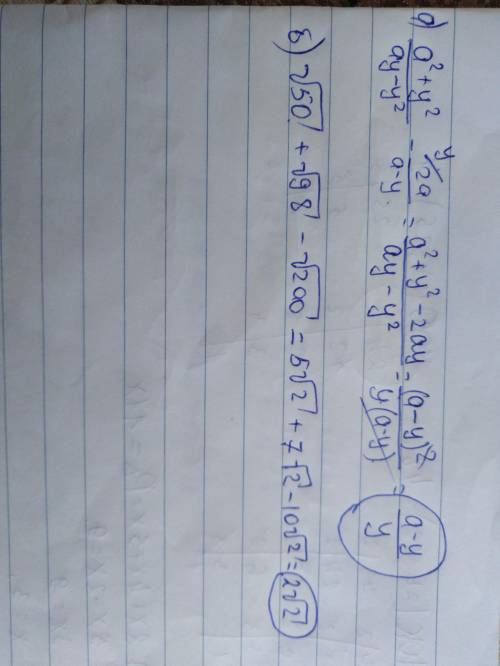 а) (a² + y²)/(ay - y²) - y/ 2a/(a-y) = (a² + y² - 2ay)/(ay - y²) = (a-y)²/(y(a-y)) = (a-y)/y
б) √50 + √98 - √200 = 5√2 + 7√2 - 10√2 = 2√2